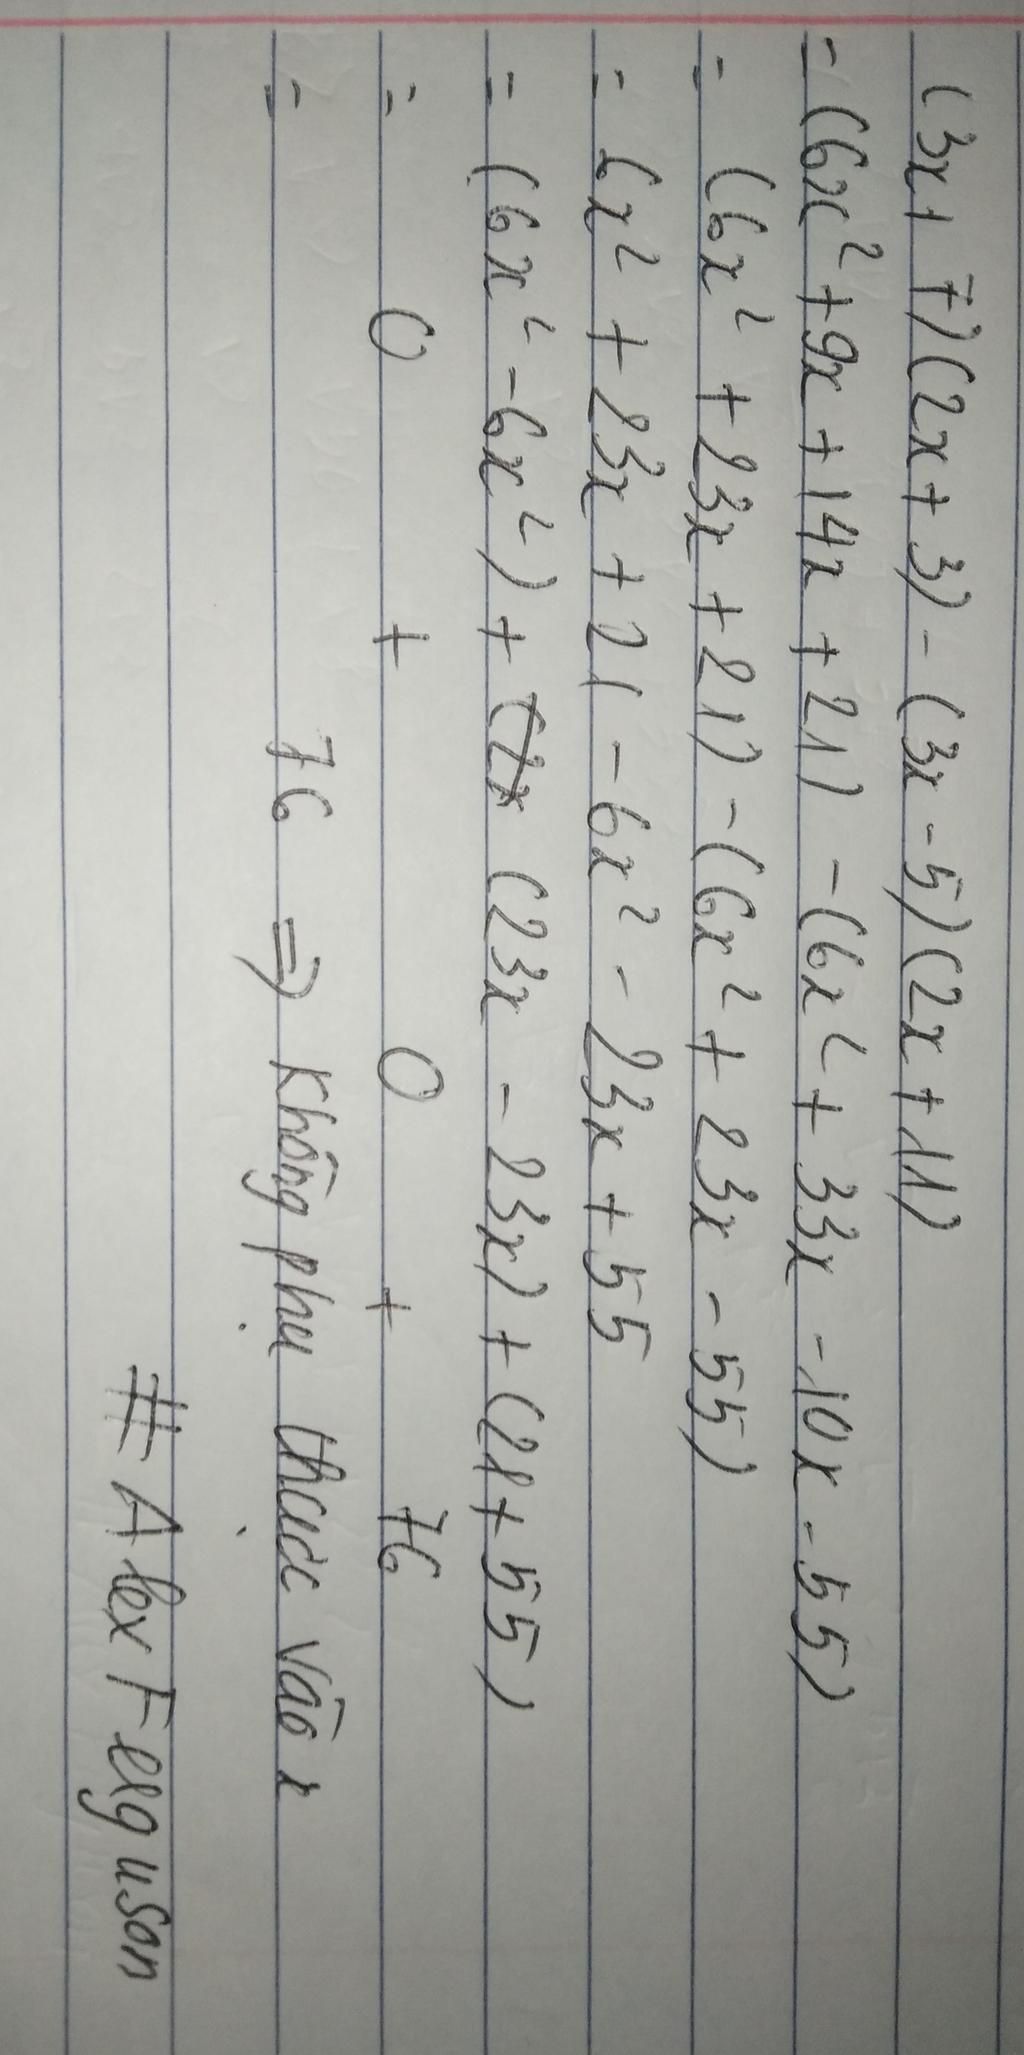 (3x + 7)(2x + 3) - (3x - 5)(2x + 11)
= (6x² + 9x + 14x + 21) - (6x² + 33x - 10x - 55)
= (6x² + 23x + 21) - (6x² + 23x - 55)
= 6x² + 23x + 21 - 6x² - 23x + 55
= (6x² - 6x²) + (23x - 23x) + (21 + 55)
= 0 + 0 + 76
= 76 ⇒ Không phụ thuộc vào x
# Alex Ferguson